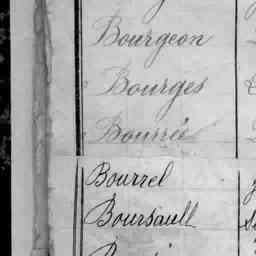 Bourgeon
Bourges
Bourrée
Bourrel
Boursault